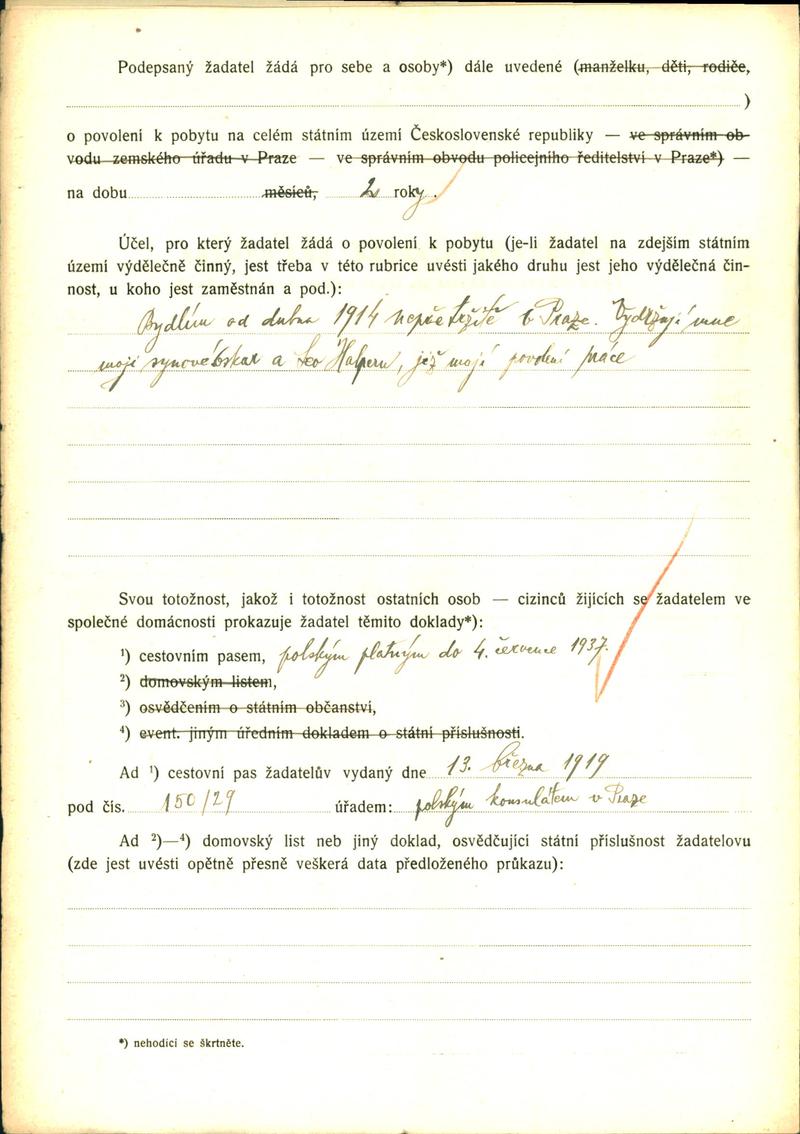 Podepsaný žadatel žádá pro sebe a osoby*) dále uvedené (manželku, děti, rodiče,
)
o povolení k pobytu na celém státním území Československé republiky — ve správním ob-
vodu zemského úřadu v Praze — ve správním obvodu policejního ředitelství v Praze*) —
na dobu měsíců, 2 roky.
Účel, pro který žadatel žádá o povolení k pobytu (je-li žadatel na zdejším státním
území výdělečně činný, jest třeba v této rubrice uvésti jakého druhu jest jeho výdělečná čin-
nost, u koho jest zaměstnán a pod.):
Bydlím od dubna 1914 nepřetržitě v Praze. Vydržují mne
moji synové Oskar a Leo Halpern, již mají povolení práce
Svou totožnost, jakož i totožnost ostatních osob — cizinců žijících se žadatelem ve
společné domácnosti prokazuje žadatel těmito doklady*):
¹) cestovním pasem, polským platným do 4. července 1937.
²) domovským listem,
³) osvědčením o státním občanství,
⁴) event. jiným úředním dokladem o státní příslušnosti.
Ad ¹) cestovní pas žadatelův vydaný dne 13. března 1919
pod čís. 150/29 úřadem: polským konsulátem v Praze
Ad ²)—⁴) domovský list neb jiný doklad, osvědčující státní příslušnost žadatelovu
(zde jest uvésti opětně přesně veškerá data předloženého průkazu):
*) nehodící se škrtněte.